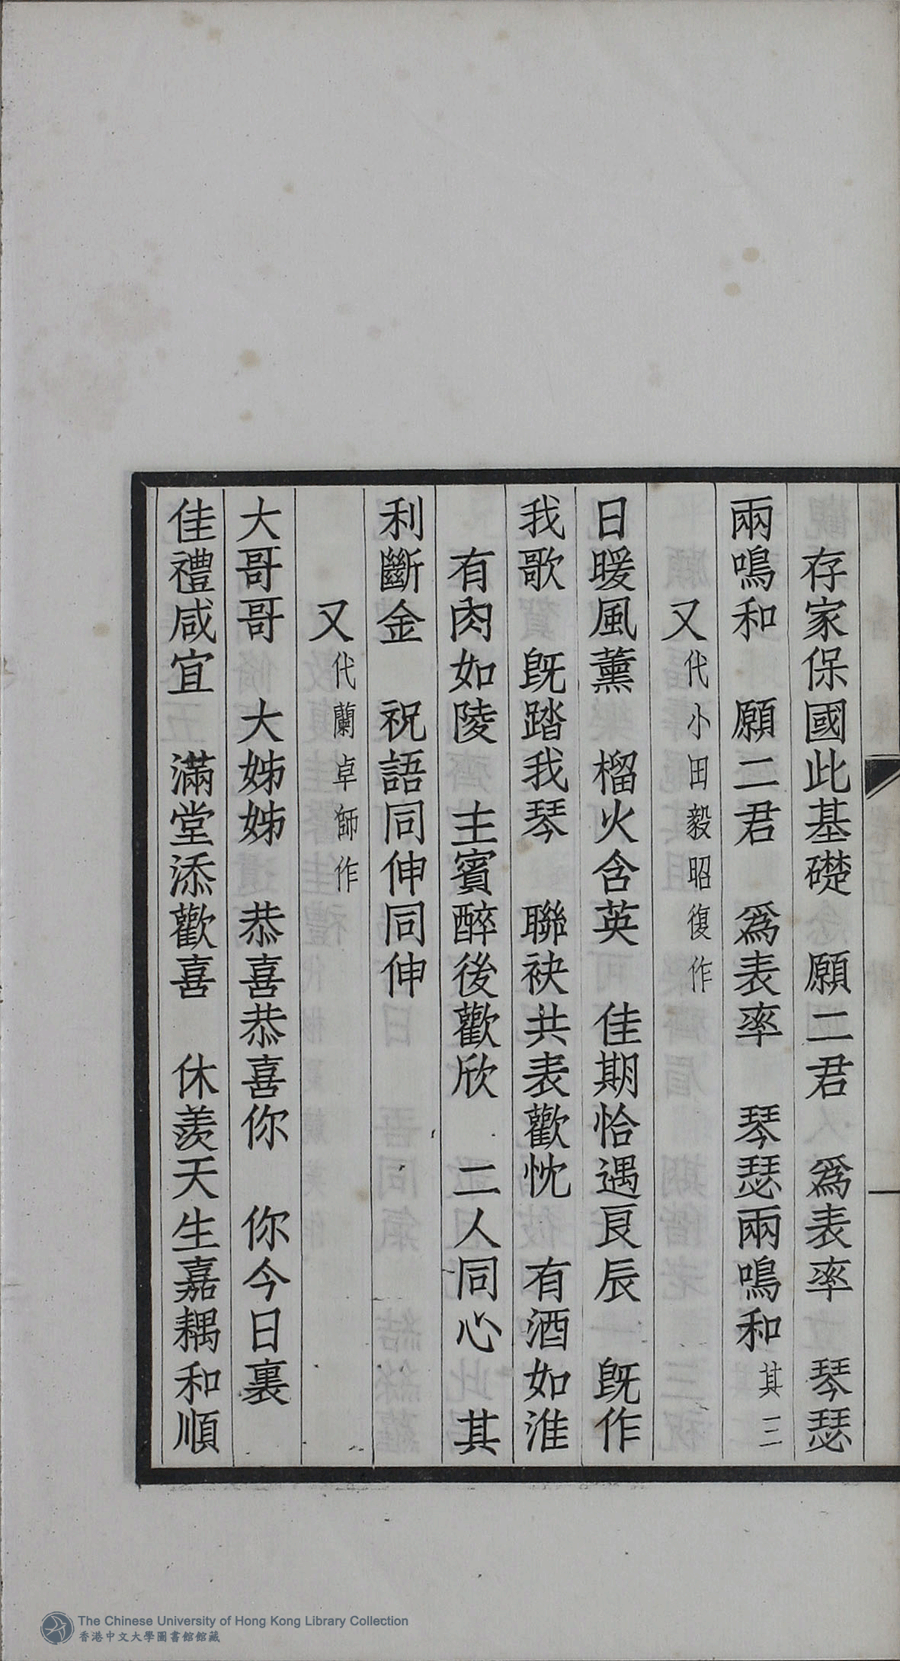 存家保國此基礎　願二君　爲表率　琴瑟
兩鳴和　願二君　爲表率　琴瑟兩鳴和其三
又代小田毅昭復作
日暖風薰　榴火含英　佳期恰遇良辰　旣作
我歌　旣踏我琴　聯袂共表歡忱　有酒如淮
有肉如陵　主賓醉後歡欣　二人同心　其
利斷金　祝語同伸同伸
又代蘭卓師作
大哥哥　大姊姊　恭喜恭喜你　你今日裏
佳禮咸宜　滿堂添歡喜　休羨天生嘉耦和順
The Chinese University of Hong Kong Library Collection
香港中文大學圖書館館藏